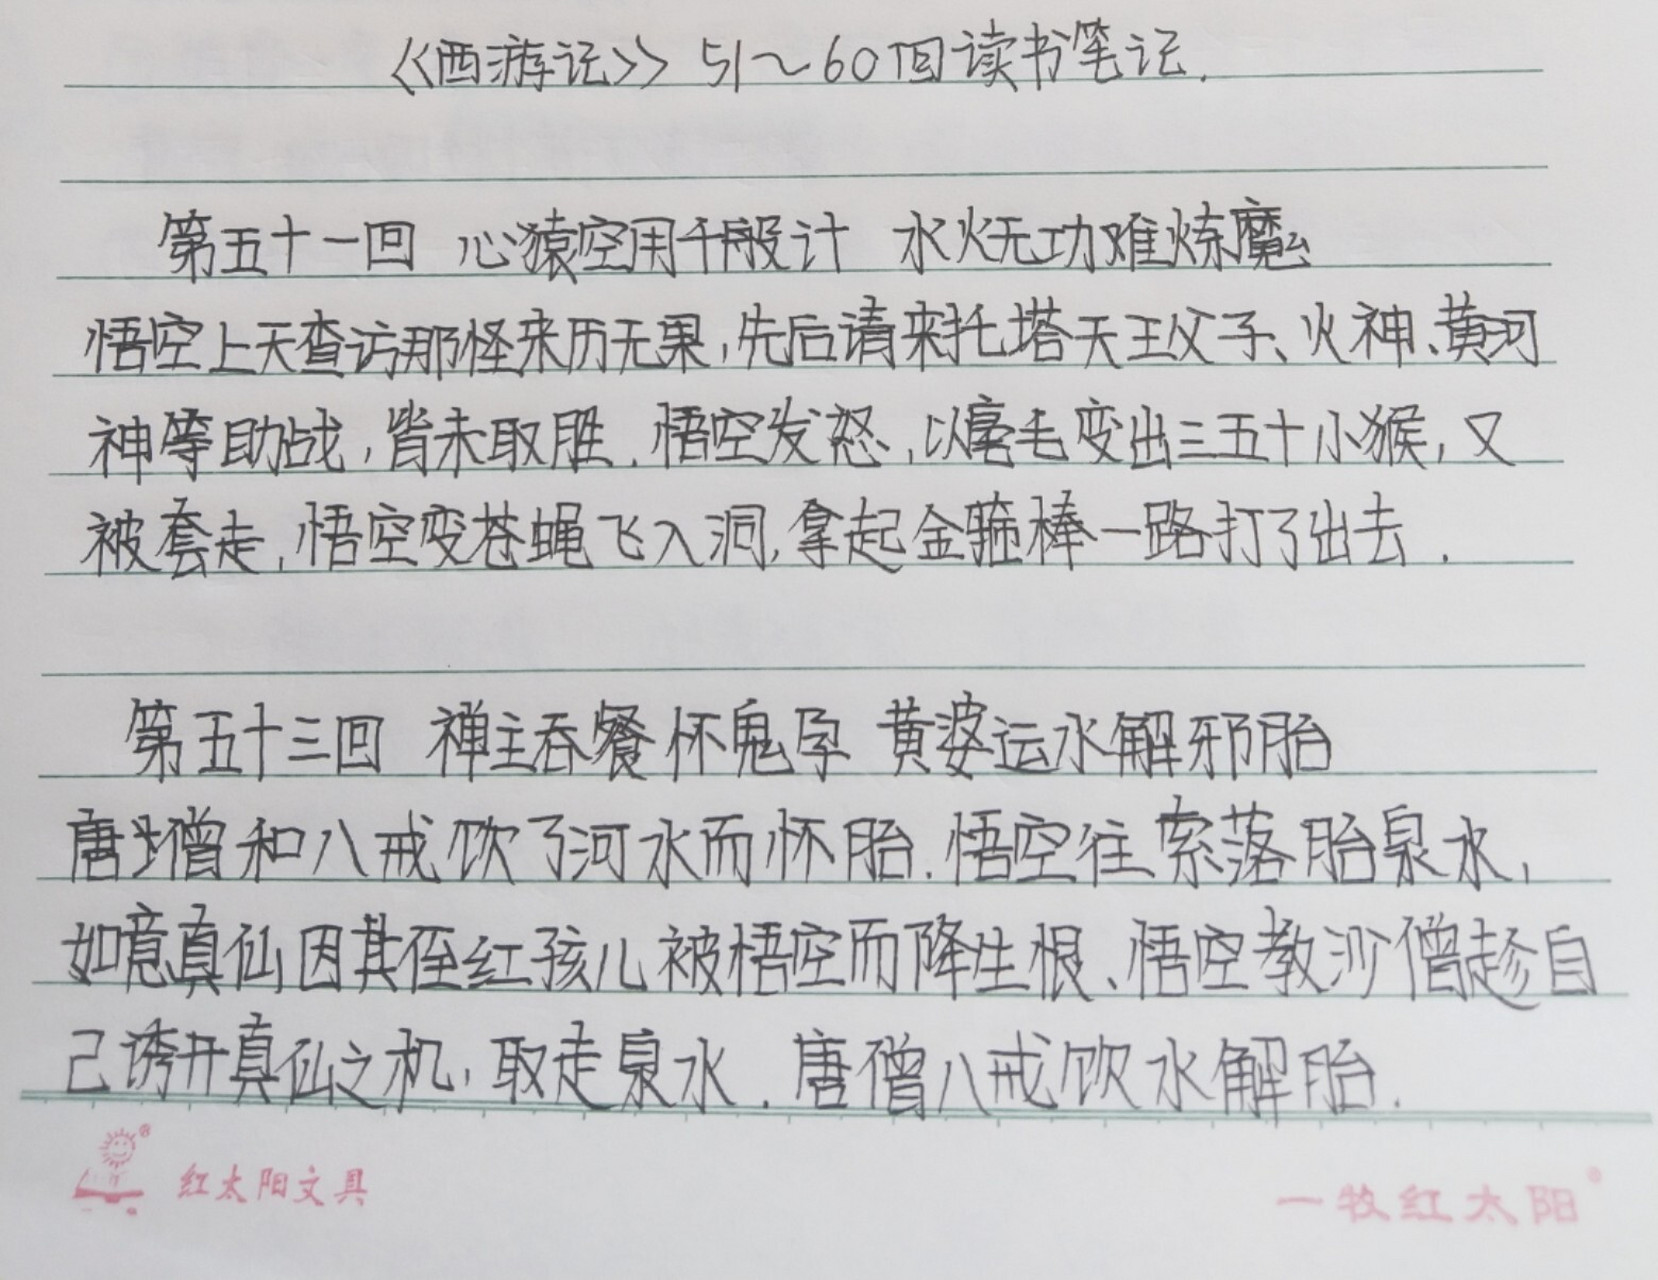 《西游记》51~60回读书笔记.
第五十一回 心猿空用千般计 水火无功难炼魔
悟空上天查访那怪来历无果,先后请来托塔天王父子、火神、黄河
神等助战,皆未取胜.悟空发怒,以毫毛变出三五十小猴,又
被套走,悟空变苍蝇飞入洞,拿起金箍棒一路打了出去.
第五十三回 禅主吞餐怀鬼孕 黄婆运水解邪胎
唐僧和八戒饮了河水而怀胎.悟空往索落胎泉水,
如意真仙因其侄红孩儿被悟空而降生恨、悟空教沙僧趁自
己诱开真仙之机,取走泉水.唐僧八戒饮水解胎.
红太阳文具
一牧红太阳